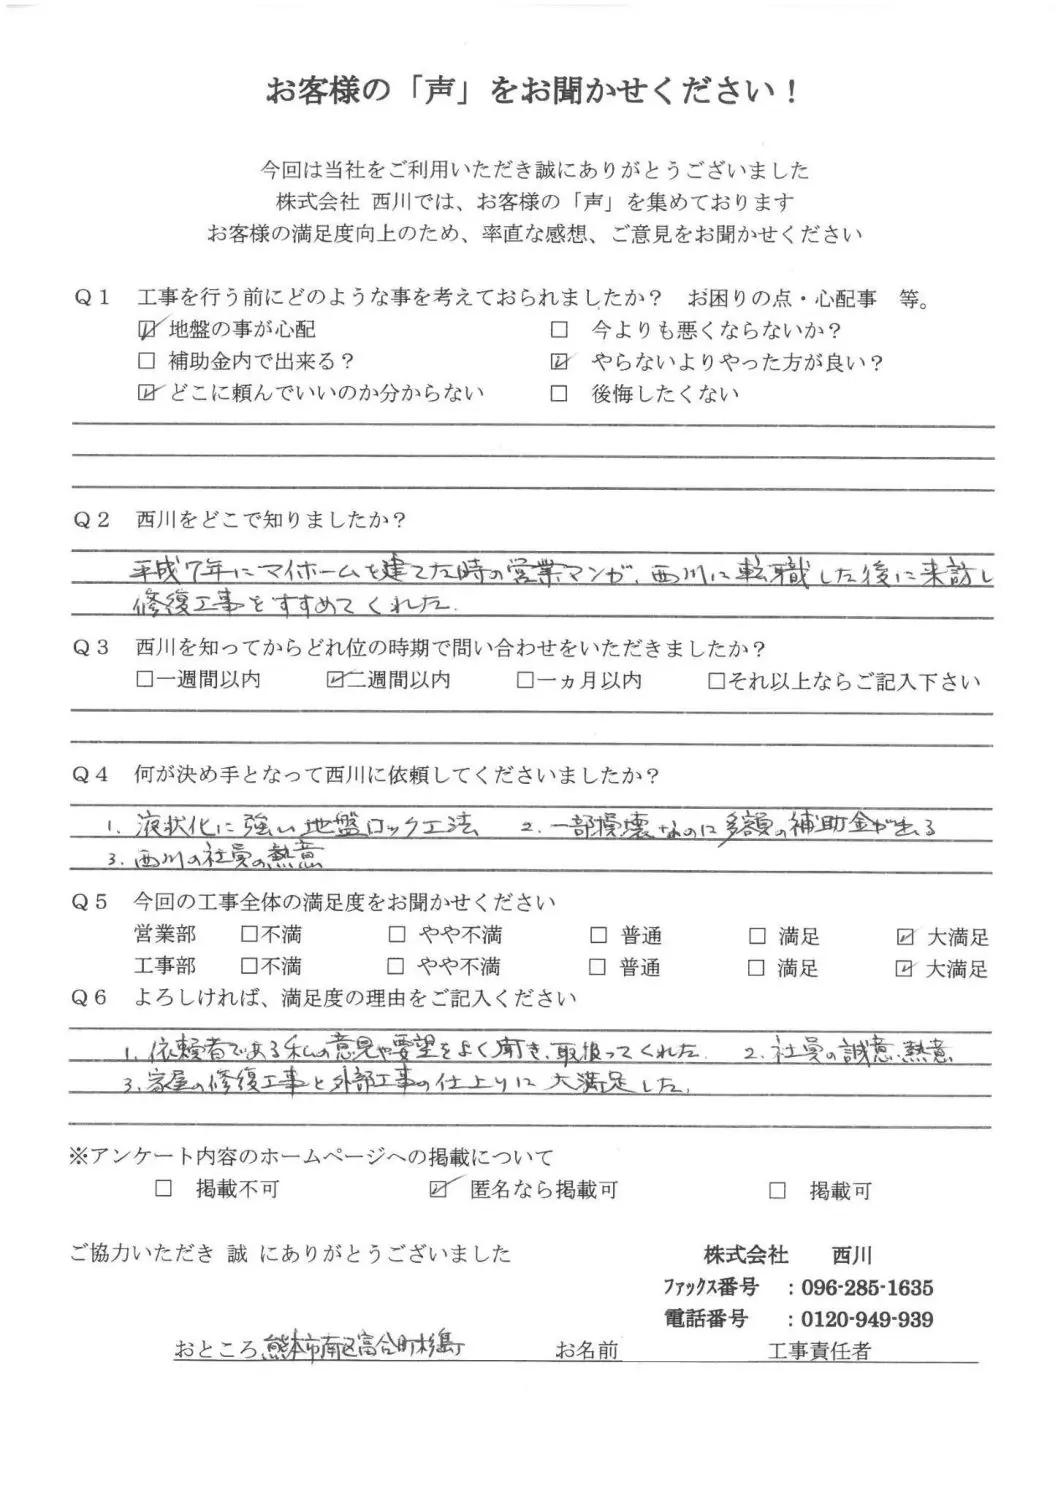 お客様の「声」をお聞かせください!
今回は当社をご利用いただき誠にありがとうございました
株式会社 西川では、お客様の「声」を集めております
お客様の満足度向上のため、率直な感想、ご意見をお聞かせください
Q1 工事を行う前にどのような事を考えておられましたか? お困りの点・心配事 等。
☑ 地盤の事が心配 □ 今よりも悪くならないか?
□ 補助金内で出来る? ☑ やらないよりやった方が良い?
☑ どこに頼んでいいのか分からない □ 後悔したくない
Q2 西川をどこで知りましたか?
平成7年にマイホームを建てた時の営業マンが、西川に転職した後に来訪し
修復工事をすすめてくれた.
Q3 西川を知ってからどれ位の時期で問い合わせをいただきましたか?
□一週間以内 ☑二週間以内 □一ヵ月以内 □それ以上ならご記入下さい
Q4 何が決め手となって西川に依頼してくださいましたか?
1. 液状化に強い地盤ロック工法 2. 一部損壊なのに多額の補助金が出る
3. 西川の社員の熱意
Q5 今回の工事全体の満足度をお聞かせください
営業部 □不満 □ やや不満 □ 普通 □ 満足 ☑ 大満足
工事部 □不満 □ やや不満 □ 普通 □ 満足 ☑ 大満足
Q6 よろしければ、満足度の理由をご記入ください
1. 依頼者である私の意見や要望をよく聞き、取扱ってくれた. 2. 社員の誠意、熱意
3. 家屋の修復工事と外部工事の仕上りに大満足した.
※アンケート内容のホームページへの掲載について
□ 掲載不可 ☑ 匿名なら掲載可 □ 掲載可
ご協力いただき 誠 にありがとうございました
株式会社 西川
ファックス番号 :096-285-1635
電話番号 :0120-949-939
おところ 熊本市南区富合町杉島 お名前 工事責任者